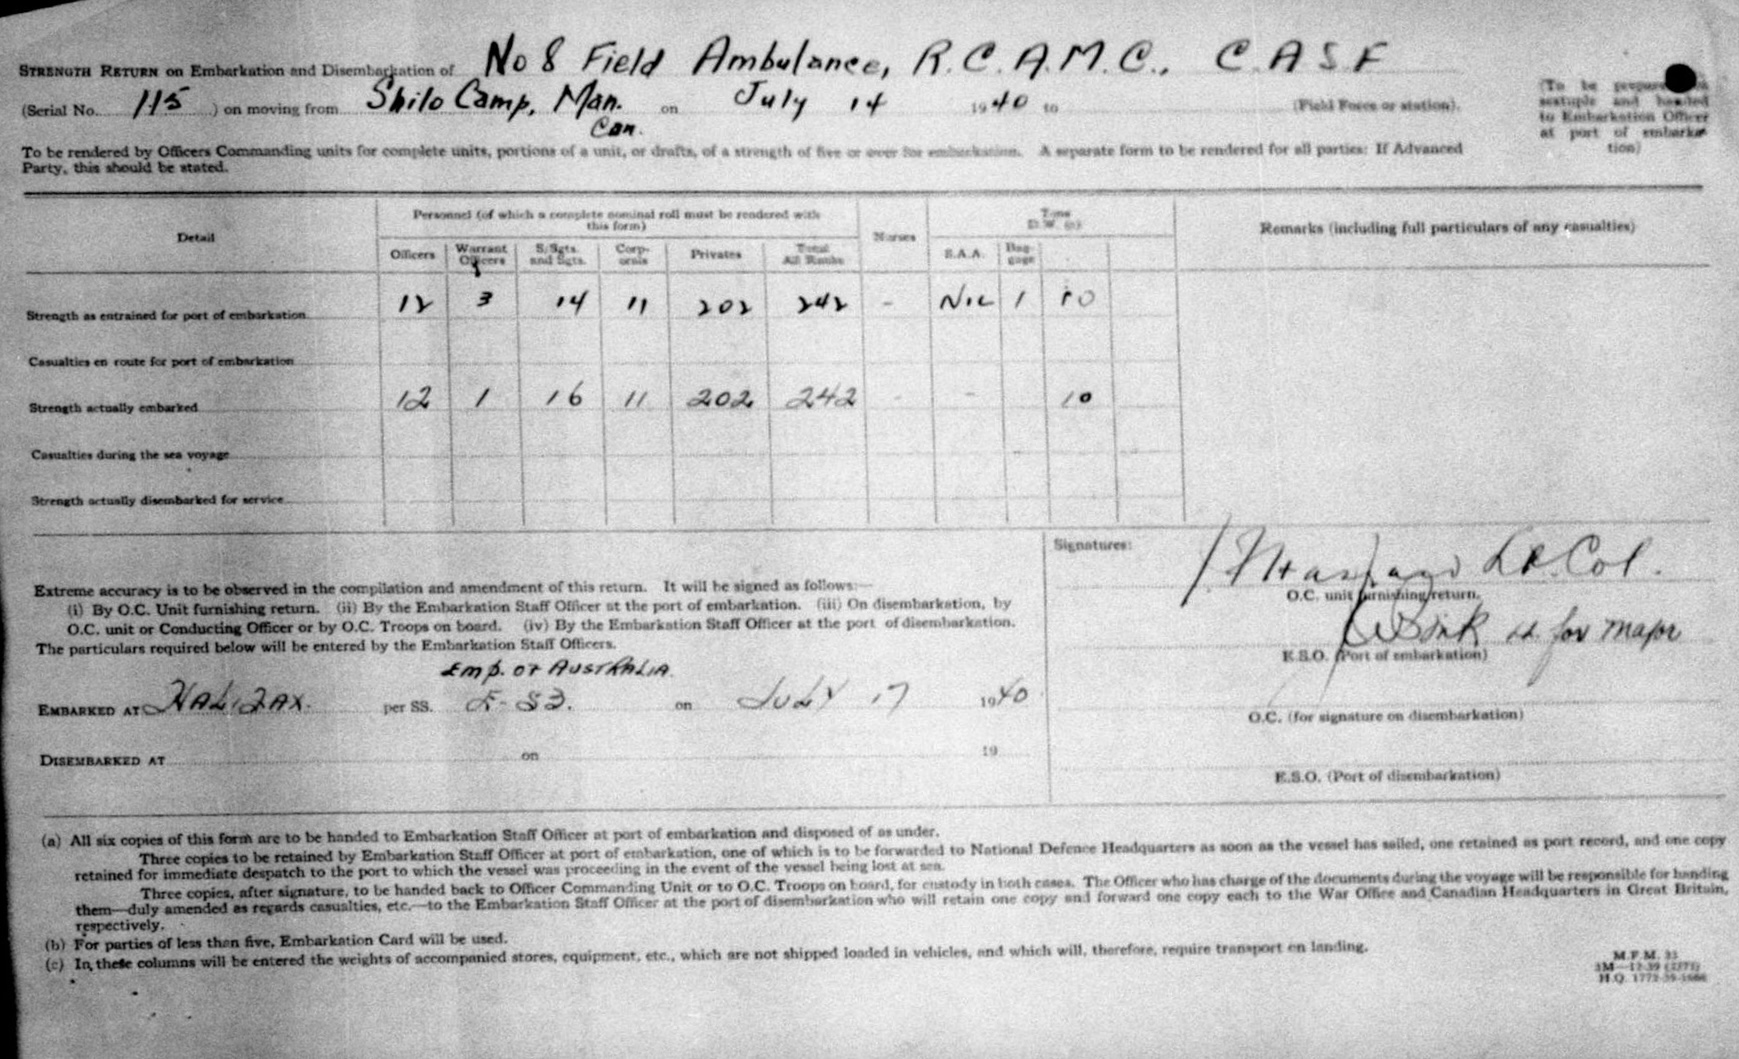 STRENGTH RETURN on Embarkation and Disembarkation of No 8 Field Ambulance, R.C.A.M.C., C A S F
(Serial No. 115 ) on moving from Shilo Camp, Man. on July 14 1940 to (Field Force or station).
Can.
(To be prepared in
sextuple and handed
to Embarkation Officer
at port of embarka-
tion)
To be rendered by Officers Commanding units for complete units, portions of a unit, or drafts, of a strength of five or over for embarkation. A separate form to be rendered for all parties: If Advanced
Party, this should be stated.
Detail
Personnel (of which a complete nominal roll must be rendered with
this form)
Nurses
Tons
D.W.
Remarks (including full particulars of any casualties)
Officers Warrant Officers S/Sgts. and Sgts. Corp-orals Privates Total All Ranks S.A.A. Bag-gage
Strength as entrained for port of embarkation 12 3 14 11 202 242 - Nil 1 10
Casualties en route for port of embarkation
Strength actually embarked 12 1 16 11 202 242 - - 10
Casualties during the sea voyage
Strength actually disembarked for service
Signatures:
Lt. Col.
O.C. unit furnishing return.
Lt. for Major
E.S.O. (Port of embarkation)
O.C. (for signature on disembarkation)
E.S.O. (Port of disembarkation)
Extreme accuracy is to be observed in the compilation and amendment of this return. It will be signed as follows:—
(i) By O.C. Unit furnishing return. (ii) By the Embarkation Staff Officer at the port of embarkation. (iii) On disembarkation, by
O.C. unit or Conducting Officer or by O.C. Troops on board. (iv) By the Embarkation Staff Officer at the port of disembarkation.
The particulars required below will be entered by the Embarkation Staff Officers.
Emp. of AUSTRALIA
EMBARKED AT HALIFAX. per SS. on JULY 17 1940
DISEMBARKED AT on 19
(a) All six copies of this form are to be handed to Embarkation Staff Officer at port of embarkation and disposed of as under.
Three copies to be retained by Embarkation Staff Officer at port of embarkation, one of which is to be forwarded to National Defence Headquarters as soon as the vessel has sailed, one retained as port record, and one copy
retained for immediate despatch to the port to which the vessel was proceeding in the event of the vessel being lost at sea.
Three copies, after signature, to be handed back to Officer Commanding Unit or to O.C. Troops on board, for custody in both cases. The Officer who has charge of the documents during the voyage will be responsible for handing
them—duly amended as regards casualties, etc.—to the Embarkation Staff Officer at the port of disembarkation who will retain one copy and forward one copy each to the War Office and Canadian Headquarters in Great Britain,
respectively.
(b) For parties of less than five, Embarkation Card will be used.
(c) In these columns will be entered the weights of accompanied stores, equipment, etc., which are not shipped loaded in vehicles, and which will, therefore, require transport on landing.
M.F.M. 33